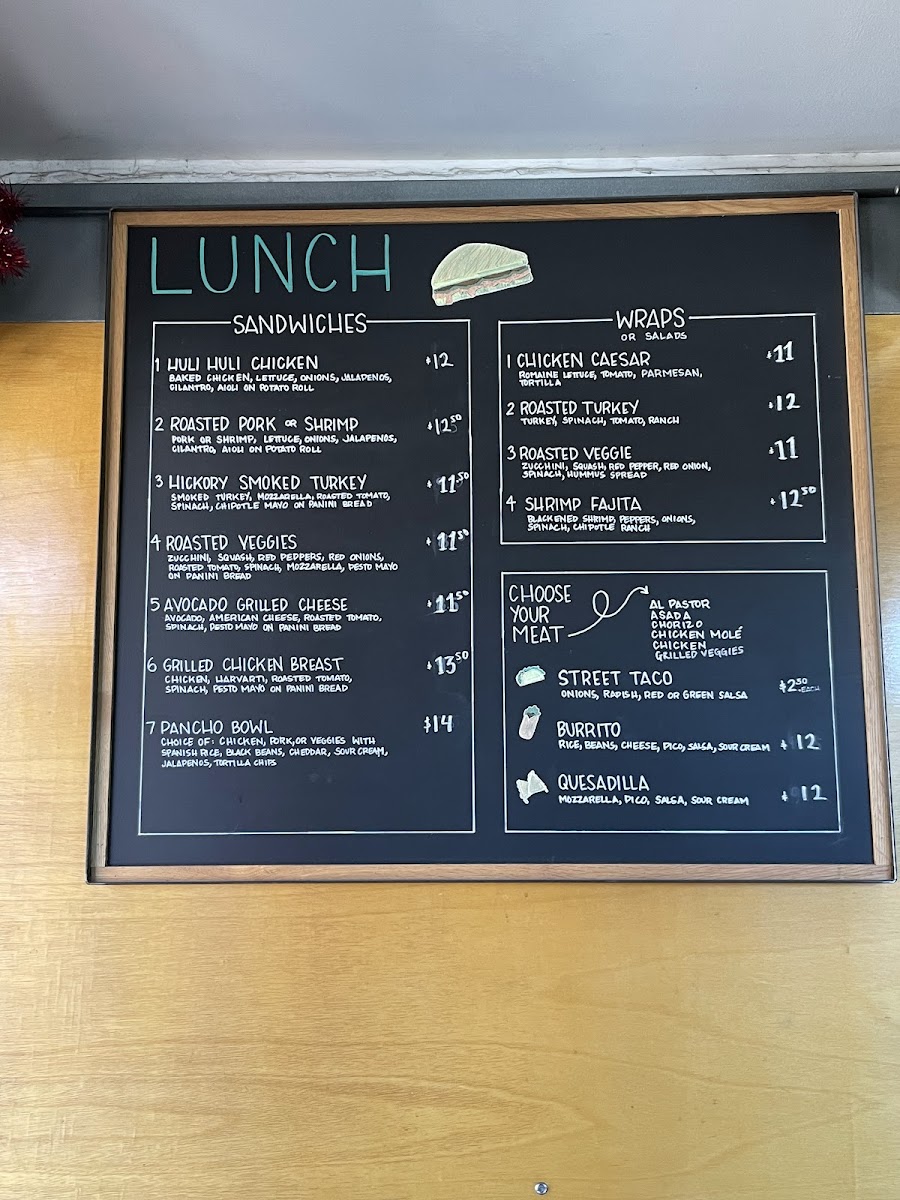 LUNCH
SANDWICHES
1 HULI HULI CHICKEN $12
BAKED CHICKEN, LETTUCE, ONIONS, JALAPENOS,
CILANTRO, AIOLI ON POTATO ROLL
2 ROASTED PORK OR SHRIMP $12.50
PORK OR SHRIMP, LETTUCE, ONIONS, JALAPENOS,
CILANTRO, AIOLI ON POTATO ROLL
3 HICKORY SMOKED TURKEY $11.50
SMOKED TURKEY, MOZZARELLA, ROASTED TOMATO,
SPINACH, CHIPOTLE MAYO ON PANINI BREAD
4 ROASTED VEGGIES $11.50
ZUCCHINI, SQUASH, RED PEPPERS, RED ONIONS,
ROASTED TOMATO, SPINACH, MOZZARELLA, PESTO MAYO
ON PANINI BREAD
5 AVOCADO GRILLED CHEESE $11.50
AVOCADO, AMERICAN CHEESE, ROASTED TOMATO,
SPINACH, PESTO MAYO ON PANINI BREAD
6 GRILLED CHICKEN BREAST $13.50
CHICKEN, HARVARTI, ROASTED TOMATO,
SPINACH, PESTO MAYO ON PANINI BREAD
7 PANCHO BOWL $14
CHOICE OF: CHICKEN, PORK, OR VEGGIES WITH
SPANISH RICE, BLACK BEANS, CHEDDAR, SOUR CREAM,
JALAPENOS, TORTILLA CHIPS
WRAPS
OR SALADS
1 CHICKEN CAESAR $11
ROMAINE LETTUCE, TOMATO, PARMESAN,
TORTILLA
2 ROASTED TURKEY $12
TURKEY, SPINACH, TOMATO, RANCH
3 ROASTED VEGGIE $11
ZUCCHINI, SQUASH, RED PEPPER, RED ONION,
SPINACH, HUMMUS SPREAD
4 SHRIMP FAJITA $12.50
BLACKENED SHRIMP, PEPPERS, ONIONS,
SPINACH, CHIPOTLE RANCH
CHOOSE
YOUR
MEAT
AL PASTOR
ASADA
CHORIZO
CHICKEN MOLÉ
CHICKEN
GRILLED VEGGIES
STREET TACO $2.50 EACH
ONIONS, RADISH, RED OR GREEN SALSA
BURRITO
RICE, BEANS, CHEESE, PICO, SALSA, SOUR CREAM $12
QUESADILLA
MOZZARELLA, PICO, SALSA, SOUR CREAM $12